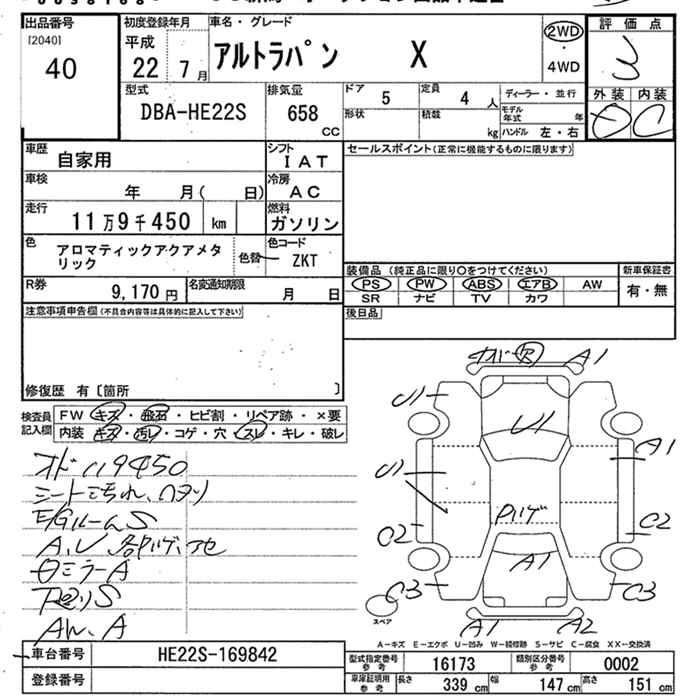 出品番号 初度登録年月 車名・グレード 評価点
[2040]
40
平成
22 7月
アルトラパン X
2WD
・
4WD
3
型式 排気量 ドア 定員 ディーラー・並行 外装 内装
DBA-HE22S 658 CC 5 4人
形状 積載 kg モデル年式 年
ハンドル 左・右
D C
車歴 自家用 シフト IAT
セールスポイント(正常に機能するものに限ります)
車検 年 月( 日) 冷房 AC
走行 11万9千450 km 燃料 ガソリン
色 アロマティックアクアメタリック 色替 色コード ZKT
装備品 (純正品に限り○をつけてください) 新車保証書
PS PW ABS エアB AW 有・無
SR ナビ TV カワ
R券 9,170円 名変通知期限 月 日
後日品
注意事項申告欄(不具合内容等は具体的に記入して下さい)
修復歴 有〔箇所 〕
検査員記入欄
FW キズ・飛石・ヒビ割・リペア跡・×要
内装 キズ・汚レ・コゲ・穴・スレ・キレ・破レ
オド119450
シートこぢれ、
E/GルームS
A、U
ミラーA
S
A
A1
U1
U1
A1
U1
C2
C2
A1
C3
C3
A1
A2
スペア
A-キズ E-エクボ U-凹み W-補修跡 S-サビ C-腐食 XX-交換済
車台番号 HE22S-169842
登録番号
型式指定番号 参考 16173 類別区分番号 参考 0002
車庫証明用 参考 長さ 339cm 幅 147cm 高さ 151cm